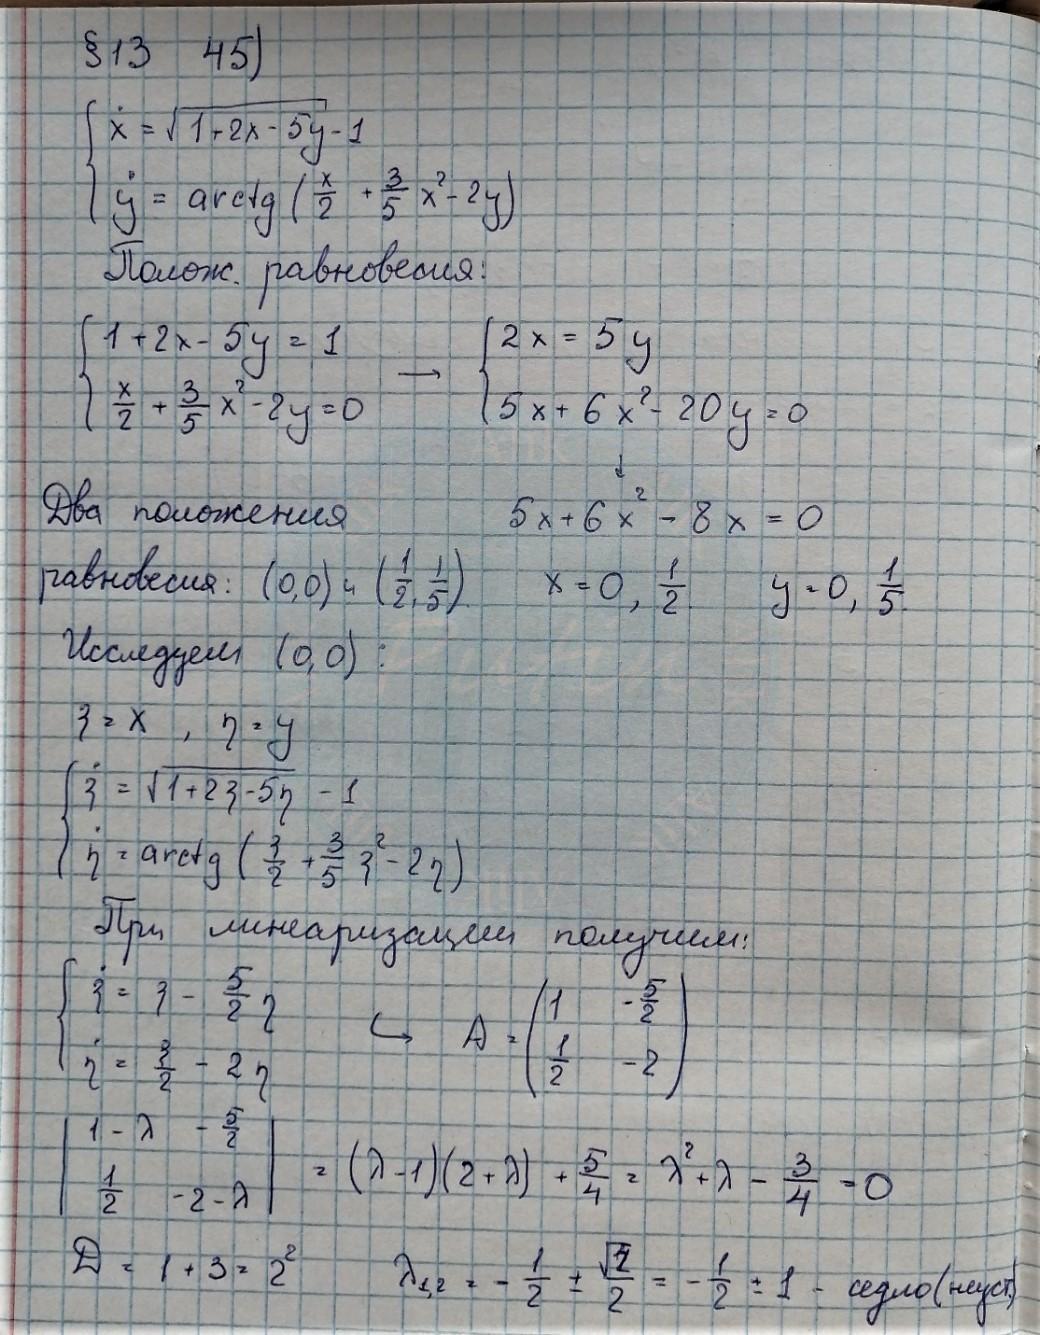 §13 45)
{ ẋ = √(1+2x-5y) - 1
{ ẏ = arctg (x/2 + 3/5 x² - 2y)
Полож. равновесия:
{ 1+2x-5y = 1 → { 2x = 5y
{ x/2 + 3/5 x² - 2y = 0 { 5x + 6x² - 20y = 0
↓
Два положения 5x + 6x² - 8x = 0
равновесия: (0,0) и (1/2, 1/5). x = 0, 1/2. y = 0, 1/5.
Исследуем (0,0):
ξ = x, η = y
{ ξ̇ = √(1+2ξ-5η) - 1
{ η̇ = arctg (ξ/2 + 3/5 ξ² - 2η)
При линеаризации получим:
{ ξ̇ = ξ - 5/2 η ↪ A = (1 -5/2
{ η̇ = ξ/2 - 2η 1/2 -2)
| 1-λ -5/2 |
| 1/2 -2-λ | = (λ-1)(2+λ) + 5/4 = λ² + λ - 3/4 = 0
D = 1+3 = 2² λ₁,₂ = -1/2 ± /2 = -1/2 ± 1 - седло (неуст)